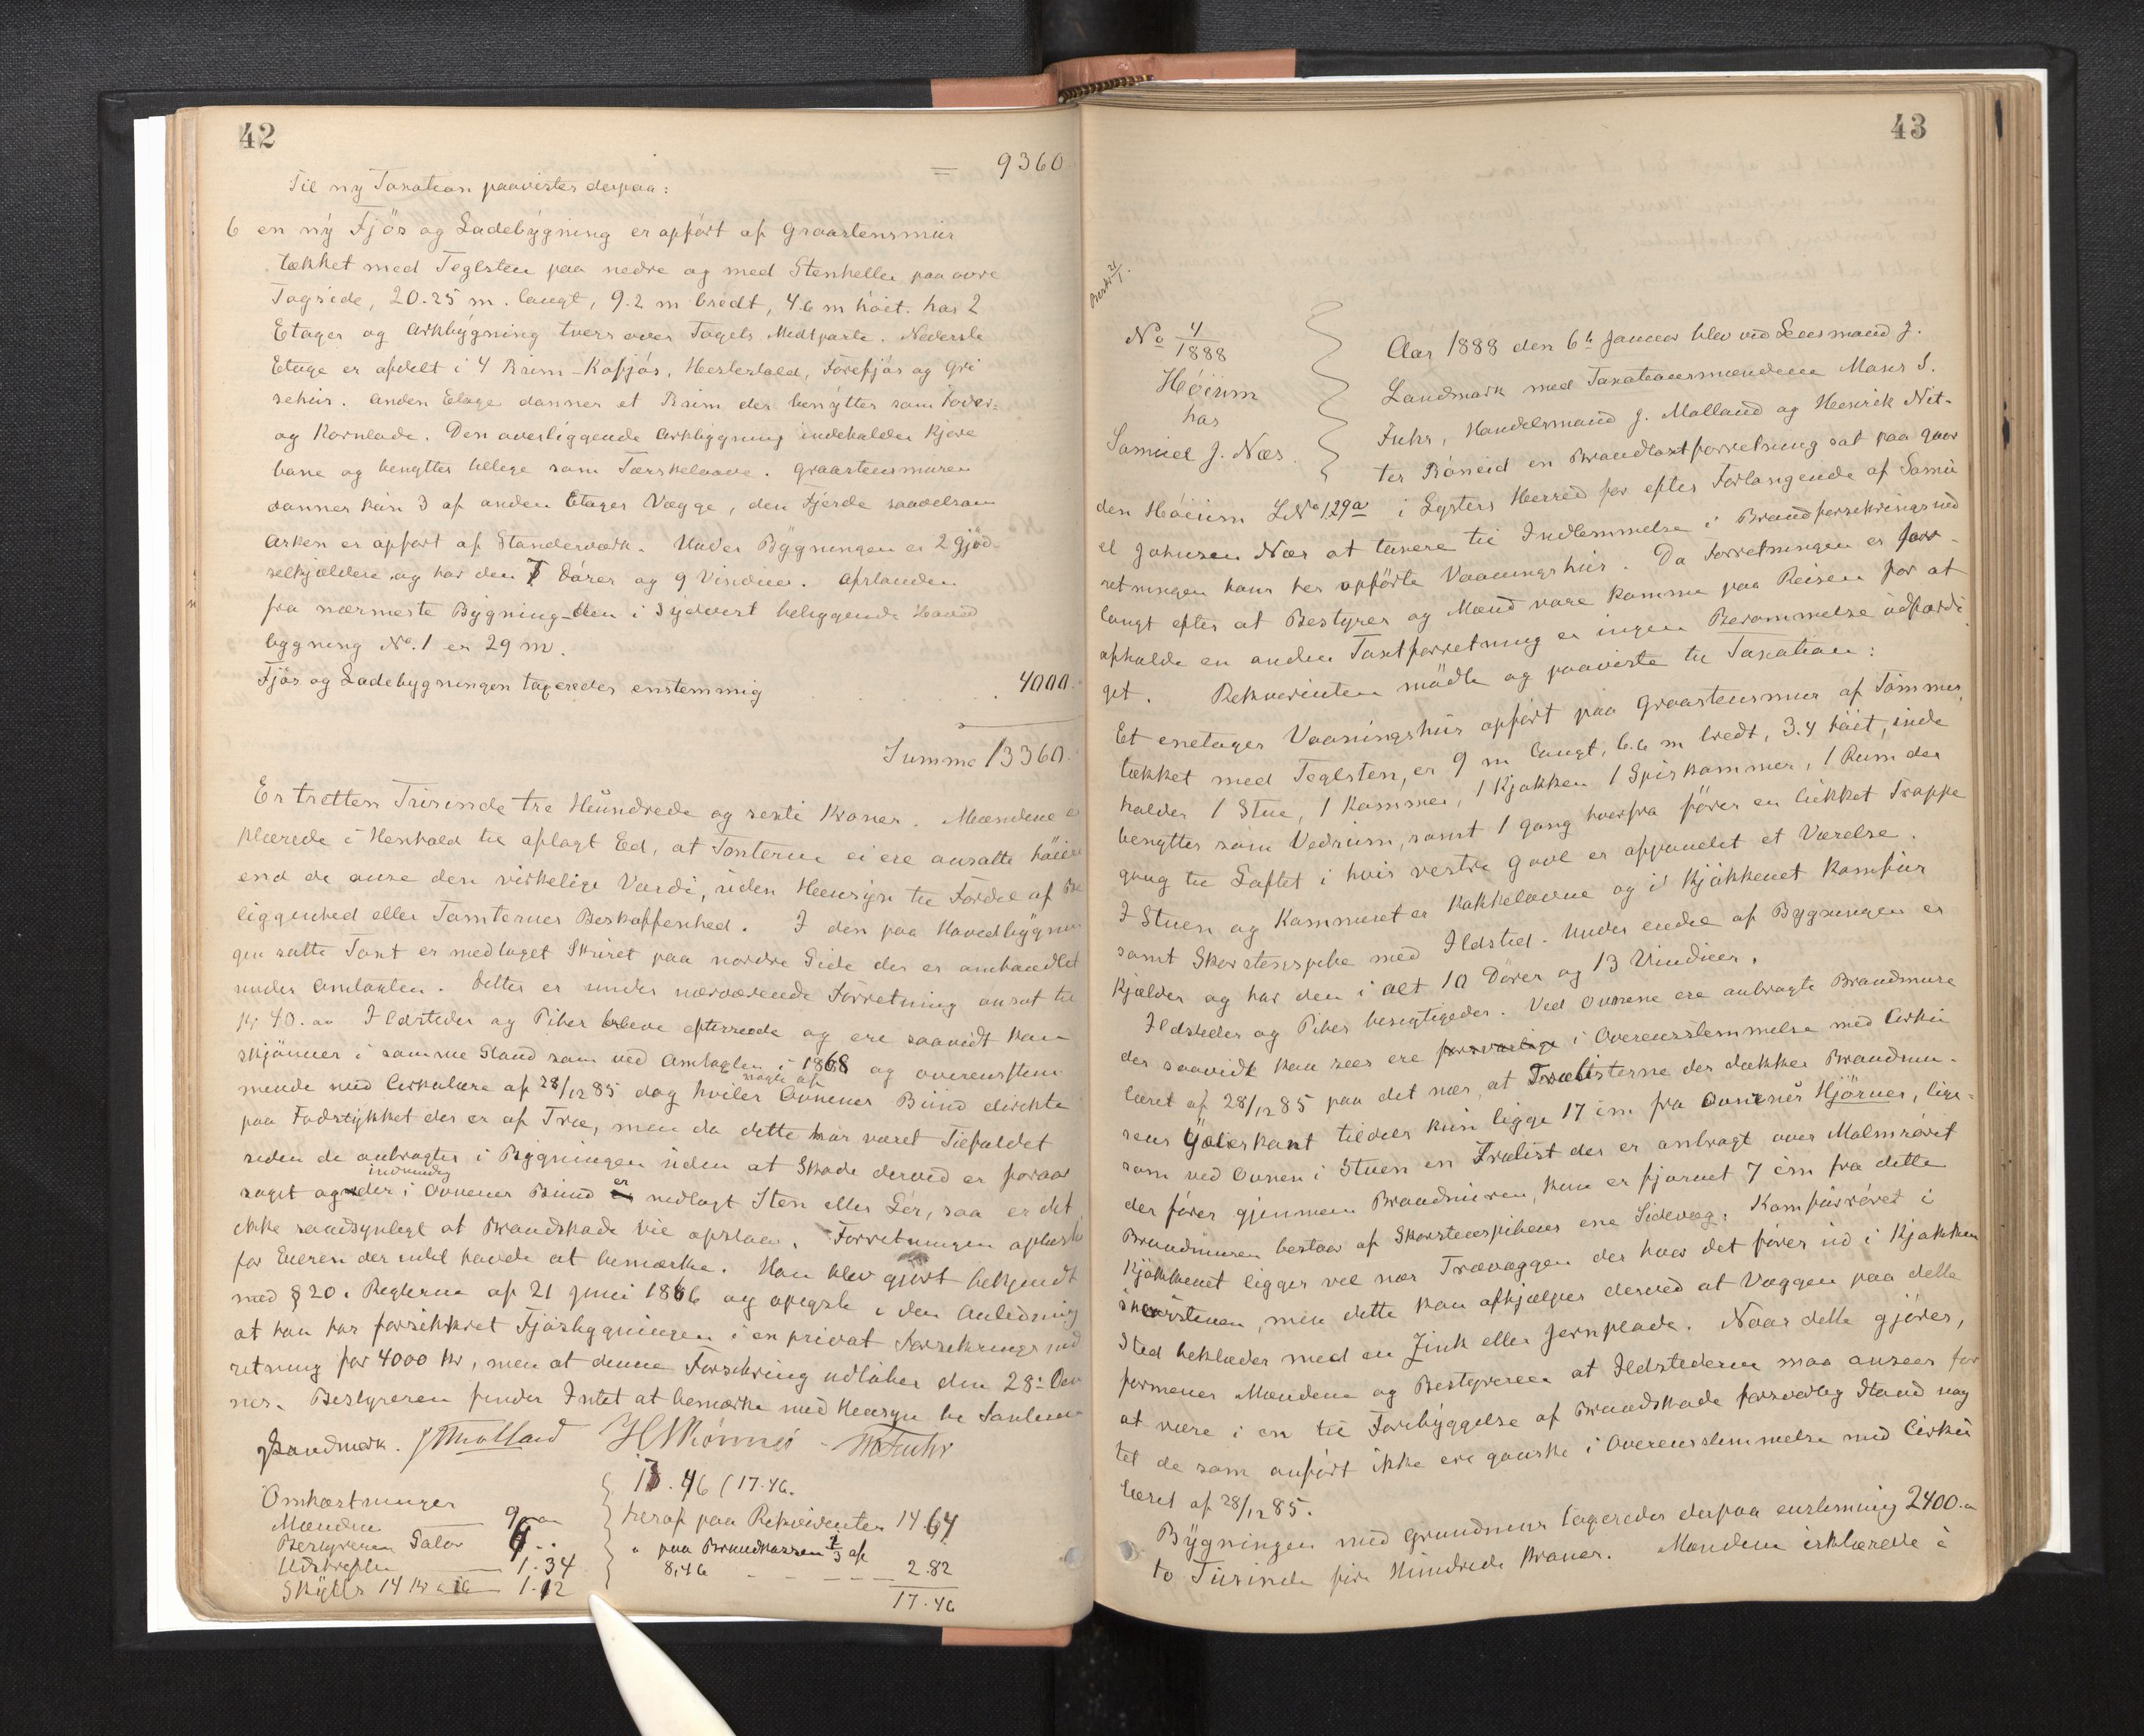 42
= 9360
Til ny Taxation paavistes derpaa:
6 en ny Fjøs og Ladebygning er opført af Graastensmur
tækket med Teglsten paa nedre og med Stenheller paa øvre
Tagside, 20.25 m. langt, 9.2 m bredt, 4.6 m høit. har 2
Etager og Arkbygning tvers over Tagets Midtparti. Nederste
Etage er afdelt i 4 Rum - Kofjøs, Hestestald, Forefjøs og Gri
sehus. Anden Etage danner et Rum der benyttes som Foder-
og Kornlade. Den overliggende Arkbygning indeholder Kjøre
bane og benyttes tillige som Tærskelaave. Graastensmuren
danner kun 3 af anden Etages Vægge, den Fjerde saavelsom
Arken er opført af Standerværk. Under Bygningen er 2 Gjød-
selkjældere og har den 7 Dører og 9 Vinduer. Afstanden
fra nærmeste Bygning - den i Sydvest beliggende Hoved
bygning No. 1 er 29 m.
Fjøs og Ladebygningen taxeredes enstemmig 4000.
Summa 13360.
Er tretten Tusinde tre Hundrede og sexti Kroner. Mændene e
klærede i Henhold til aflagt Ed, at Taxterne ei ere ansatte høiere
end de anse den virkelige Værdi, uden Hensyn til Fordel af Be
liggenhed eller Tomternes Beskaffenhed. I den paa Hovedbygnin
gen satte Taxt er medtaget Skuret paa nordre Side der er omhandlet
under Omtaxten. Dette er under nærværende Forretning ansat til
Kr 40.00 Ildsteder og Piber bleve efterseede og ere saavidt kan
skjønnes i samme Stand som ved Omtaxten i 1868 og overenstem
mende med Cirkulære af 28/12 85 dog hviler nogle af Ovnenes Bund direkte
paa Fodstykket der er af Træ, men da dette har været Tilfældet
siden de anbragtes i Bygningen uden at Skade derved er foraar
saget og der indvendig i Ovnenes Bund er nedlagt Sten eller Ler, saa er det
ikke sandsynligt at Brandskade vil opstaa. Forretningen oplæst
for Eieren der intet havde at bemærke. Han blev gjort bekjendt
med § 20 i Reglerne af 21 Juni 1886 og opgav i den Anledning
at han har forsikkret Fjøsbygningen i en privat Forsikringsind
retning for 4000 Kr, men at denne Forsikring udløber den 28de den
nes. Bestyreren finder Intet at bemærke med Hensyn til Taxterne
J Landmark. J Molland H Skønnes - M Fuhr
Omkostninger
Mændene 9,00
Bestyreren Salær 6..
Udskriften 1.34
Skyds 14 Kr a 16 1.12
17.46 (17.46.
heraf paa Rekvirenten 14 64
" paa Brandkassen 1/3 af
8,46 - - - - - 2.82
17.46
43
Besk. 21/1.
No 4/1888
Høium
hos
Samuel J. Næs.
Aar 1888 den 6te Januar blev ved Lensmand J.
Landmark med Taxationsmændene Mons S.
Fuhr, Handelsmand J. Molland og Henrik Nit-
ter Røneid en Brandtaxtforretning sat paa Gaar
den Høium LNo 129a i Lysters Herred for efter Forlangende af Samu
el Johnsen Næs at taxere til Indlemmelse i Brandforsikringsind
retningen hans her opførte Vaaningshus. Da Forretningen er for-
langt efter at Bestyrer og Mænd vare komne paa Reisen for at
afholde en anden Taxtforretning er ingen Berammelse udfærdi
get. Rekvirenten mødte og paaviste til Taxation:
Et enetages Vaaningshus opført paa Graastensmur af Tømmer,
tækket med Teglsten, er 9 m langt, 6.6 m bredt, 3.4 høit, inde
holder 1 Stue, 1 Kammer, 1 Kjøkken 1 Spiskammer, 1 Rum der
benyttes som Vedrum, samt 1 Gang hvorfra fører en lukket Trappe
gang til Loftet i hvis vestre Gavl er afpanelet et Værelse.
I Stuen og Kammeret er Kakkelovne og i Kjøkkenet Komfur
samt Skorstenspibe med Ildsted. Under endel af Bygningen er
Kjælder og har den i alt 10 Dører og 13 Vinduer.
Ildsteder og Piber besigtigedes. Ved Ovnene ere anbragte Brandmure
der saavidt kan sees ere forsvarlige i Overensstemmelse med Cirku
læret af 28/12 85 paa det nær, at Trælisterne der dækker Brandmu-
rens Yderkant tildels kun ligge 17 cm fra Ovnenes Hjørner, lige-
som ved Ovnen i Stuen en Trælist der er anbragt over Malmrøret
der fører gjennem Brandmuren, kun er fjernet 7 cm fra dette
Brandmuren bestaar af Skorstenspibens ene Sidevæg. Komfurrøret i
Kjøkkenet ligger vel nær Trævæggen der hvor det fører ud i Kjøkken
skorstenen, men dette kan afhjælpes derved at Væggen paa dette
Sted beklædes med en Zink eller Jernplade. Naar dette gjøres,
formener Mændene og Bestyreren at Ildstederne maa ansees for
at være i en til Forebyggelse af Brandskade forsvarlig Stand uag
tet de som anført ikke ere ganske i Overensstemmelse med Cirku
læret af 28/12 85.
Bygningen med Grundmur taxeredes derpaa enstemmig 2400.00
to Tusinde fire Hundrede Kroner. Mændene erklærede i